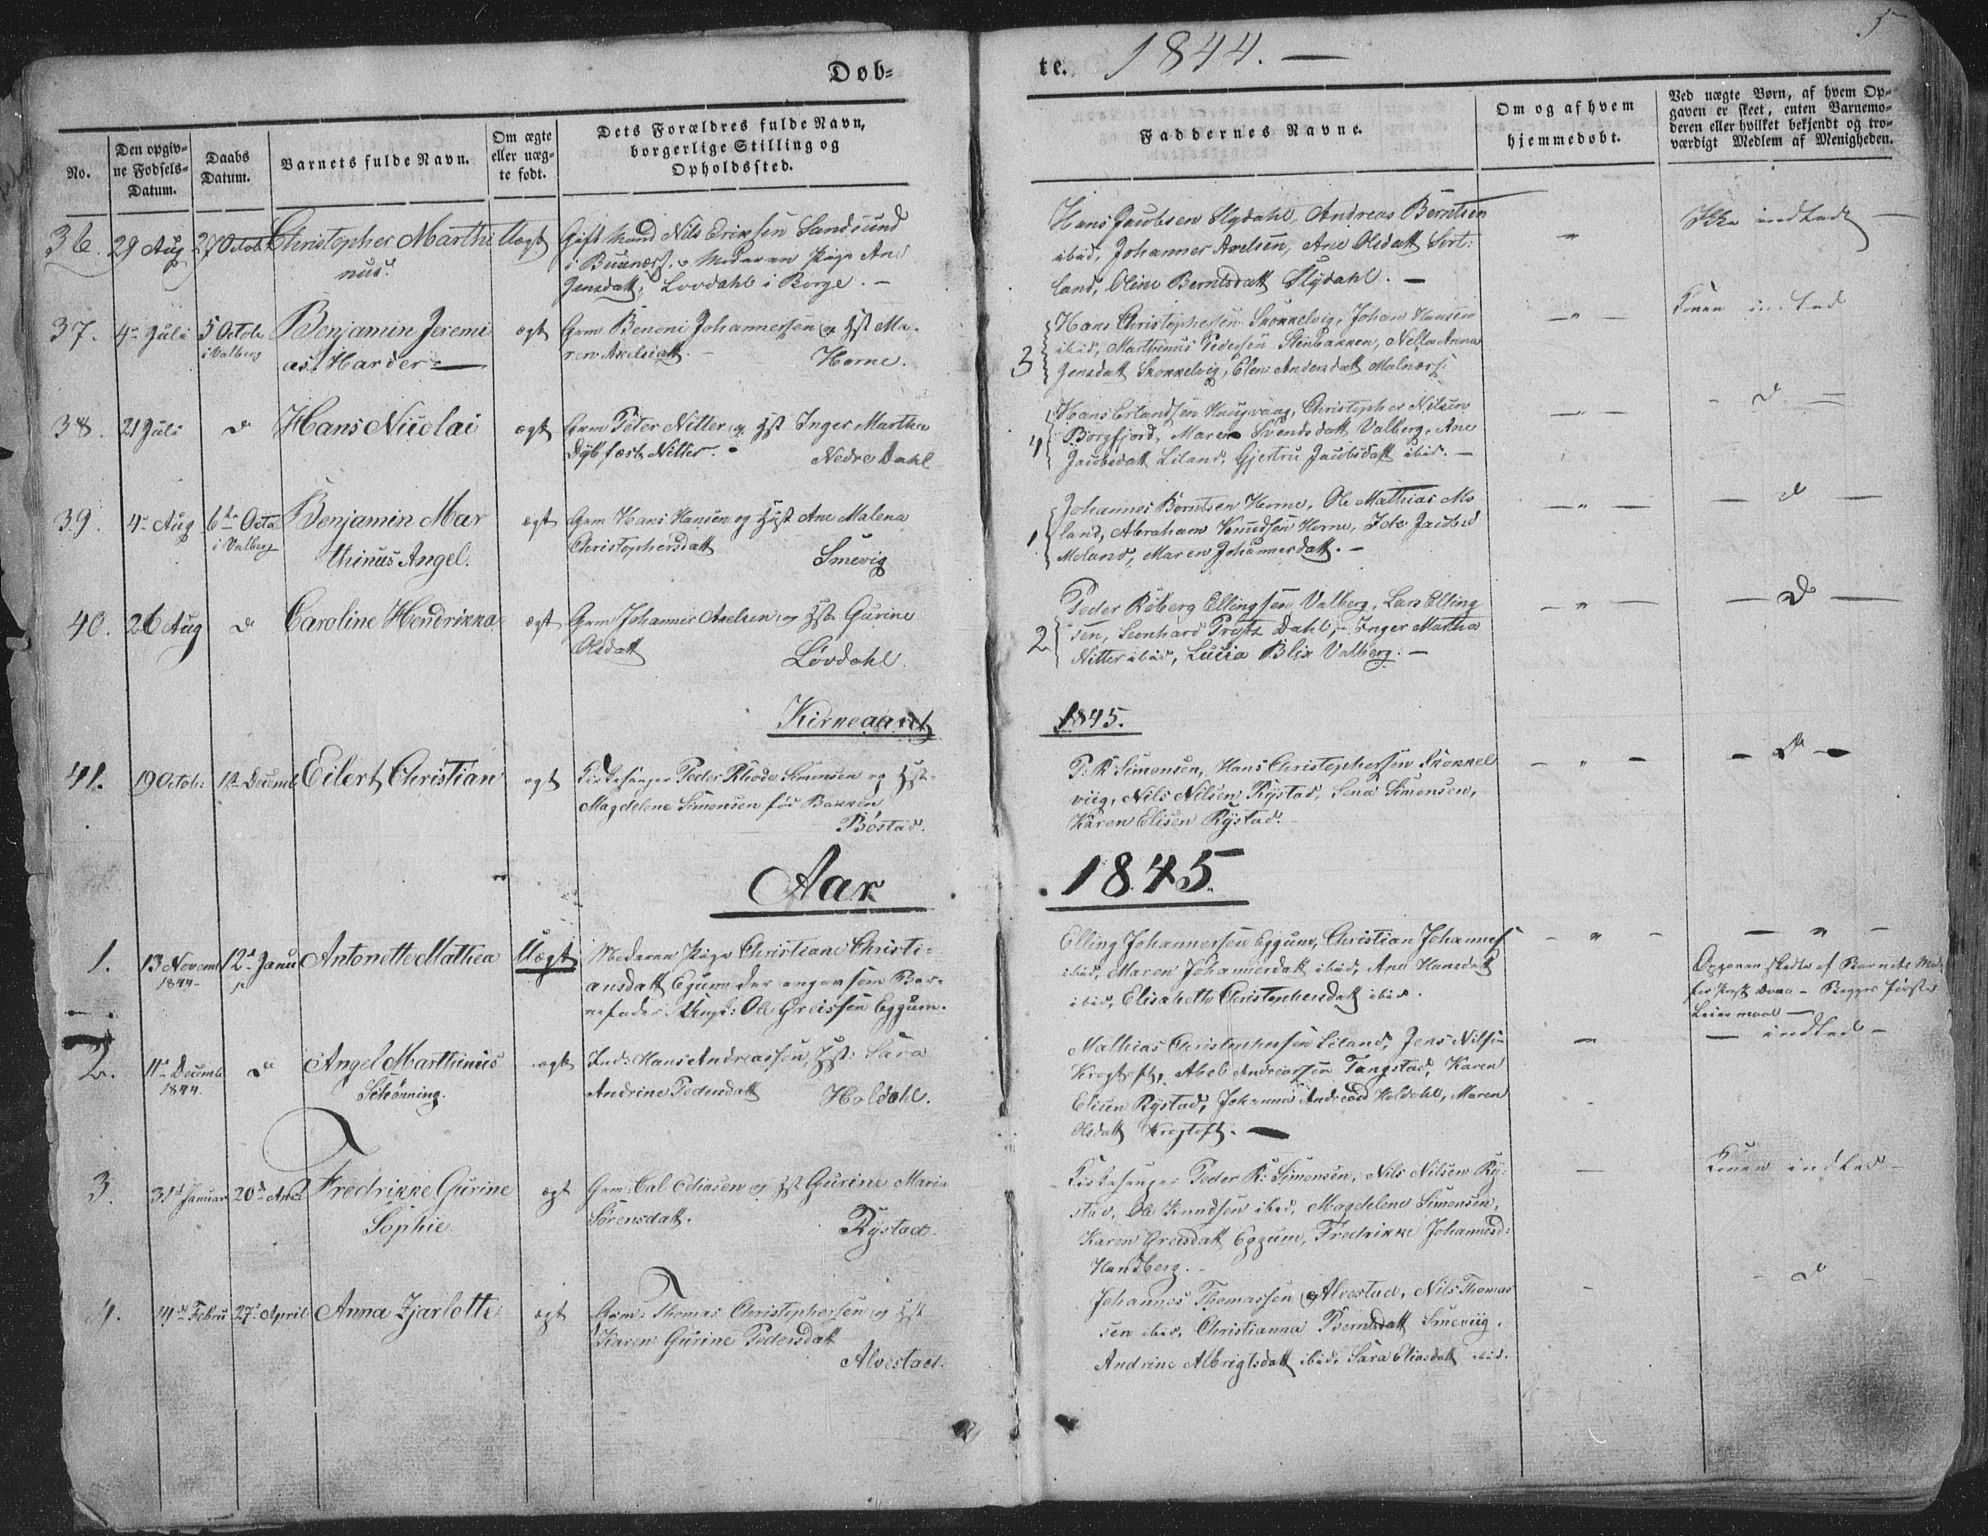 5
Døb=
te. 1844. —
No.
Den opgiv=
ne Fødsels=
Datum.
Daabs
Datum.
Barnets fulde Navn.
Om ægte
eller uæg=
te født.
Dets Forældres fulde Navn,
borgerlige Stilling og
Opholdssted.
Faddernes Navne.
Om og af hvem
hjemmedøbt.
Ved uægte Børn, af hvem Op=
gaven er skeet, enten Barnemo=
deren eller hvilket bekjendt og tro=
værdigt Medlem af Menigheden.
36. 29 Aug 27 Octob Christopher Marthi Uægt Gift Mand Nils Eriksen Sandsund
nus.
Jensdatt, Lovdahl i Borge. —
Hans Jacobsen Slydahl, Andreas Berntsen
ibid, Johannes Axelsen, Ane Olsdatt Sort=
land, Oline Berntsdatt Slydahl. —
Ikke indledt —
37. 4de Juli 5 Octob Benjamin Jeremi ægt Grm Benoni Johannessen og Hst Ma=
i Valberg
as Harder — ren Axelsdatt. — Horne.
3 Hans Christophersen Skokkelvig, Johan Hansen
ibid, Marthinus Pedersen Stenbakken, Nella Anna
Jensdatt Skokkelvig, Elen Andersdatt Malnæs.
Konen indled
38. 21 Juli d Hans Nicolai ægt Grm Peter Nitter og Hst Inger Martha
Dybfest Nitter. Nedre Dahl
4 Hans Erlandsen Haugvaag, Christopher Nilsen
Borgfjord, Maren Svendsdatt Valberg, Ane
Jacobsdatt Liland, Gjertru Jacobsdatt ibid. —
— d —
39. 4de Aug 6te Octo Benjamin Mar ægt Grm Hans Hansen og Hst Ane Malena
i Valberg
thinus Angel. Christophersdatt Smevig
1 Johannes Berntsen Horne, Ole Mathias Mo
land, Abraham Knudsen Horne, Ide Jacobsd
Moland, Maren Johannesdatt. —
— d —
40. 26 Aug d Caroline Hendrikka ægt Grm Johannes Axelsen og Hst Gurine
Olsdatt Løvdahl.
2 Peder Røberg Ellingsen Valberg, Lars Elling
sen, Leonhard Prytz Dahl, Inger Martha
Nitter ibid, Lucia Blix Valberg. —
— d —
Kirkeaaret
1845.
41. 19 Octob: 1ste Decemb Eilert Christian ægt Kirkesanger Peder Rhode Simonsen og Hst
Magdelene Simonsen fød Bakken
Bøstad.
P: R: Simonsen, Hans Christophersen Skokkel
viig, Nils Nilsen Rystad, Lena Simonsen,
Karen Elisen Rystad.
— d —
Aar
1845.
1. 13 Novemb 12te Janu Antonette Mathea Uægt Moderen Pige Christiane Christi=
1844
ansdatt Egum der angav som Bar=
nefader Ungk: Ole Greissen Eggum.
Elling Johannessen Eggum, Christian Johannes
ibid, Maren Johannesdatt ibid, Ane Hansdatt
ibid, Elisabeth Christophersdatt ibid.
Opgaven skede af Barnets Mo
Begges første
Leiermaal —
2. 11te Decemb d Angel Marthinus ægt Ind: Hans Andreassen, Hst: Sara
1844.
Schønning. Andrine Pedersdatt Holdahl.
Mathias Christophersen Liland, Jens Nilsen
Krogtoft, Abel Andreassen Tangstad, Karen
Elisen Rystad, Johanna Andreasd Holdahl, Maren
Olsdatt Krogtoft. —
— indled —
3. 31te Januar 20de Fredrikke Gurine ægt Grm: Edissen og Hst Gurine Maria
Sophie. Sørensdatt. Rystad.
Kirkesanger Peder R: Simonsen, Nils Nilsen Ry=
stad, Ole Knudsen ibid, Magdelene Simonsen,
Karen Greisdatt Eggum, Fredrikke Johannesd:
Handberg. —
Konen indled —
4. 14de Febru 27de April Anna Zjarlotte ægt Grm: Thomas Christophersen og Hst
Karen Gurine Pedersdatt
Alvestad.
Johannes Thomassen Alvestad, Nils Thomas
sen ibid, Christianna Berntsdatt Smeviig.
Andrine Albrigtsdatt ibid, Sara Eliasdatt ibid.
— d —